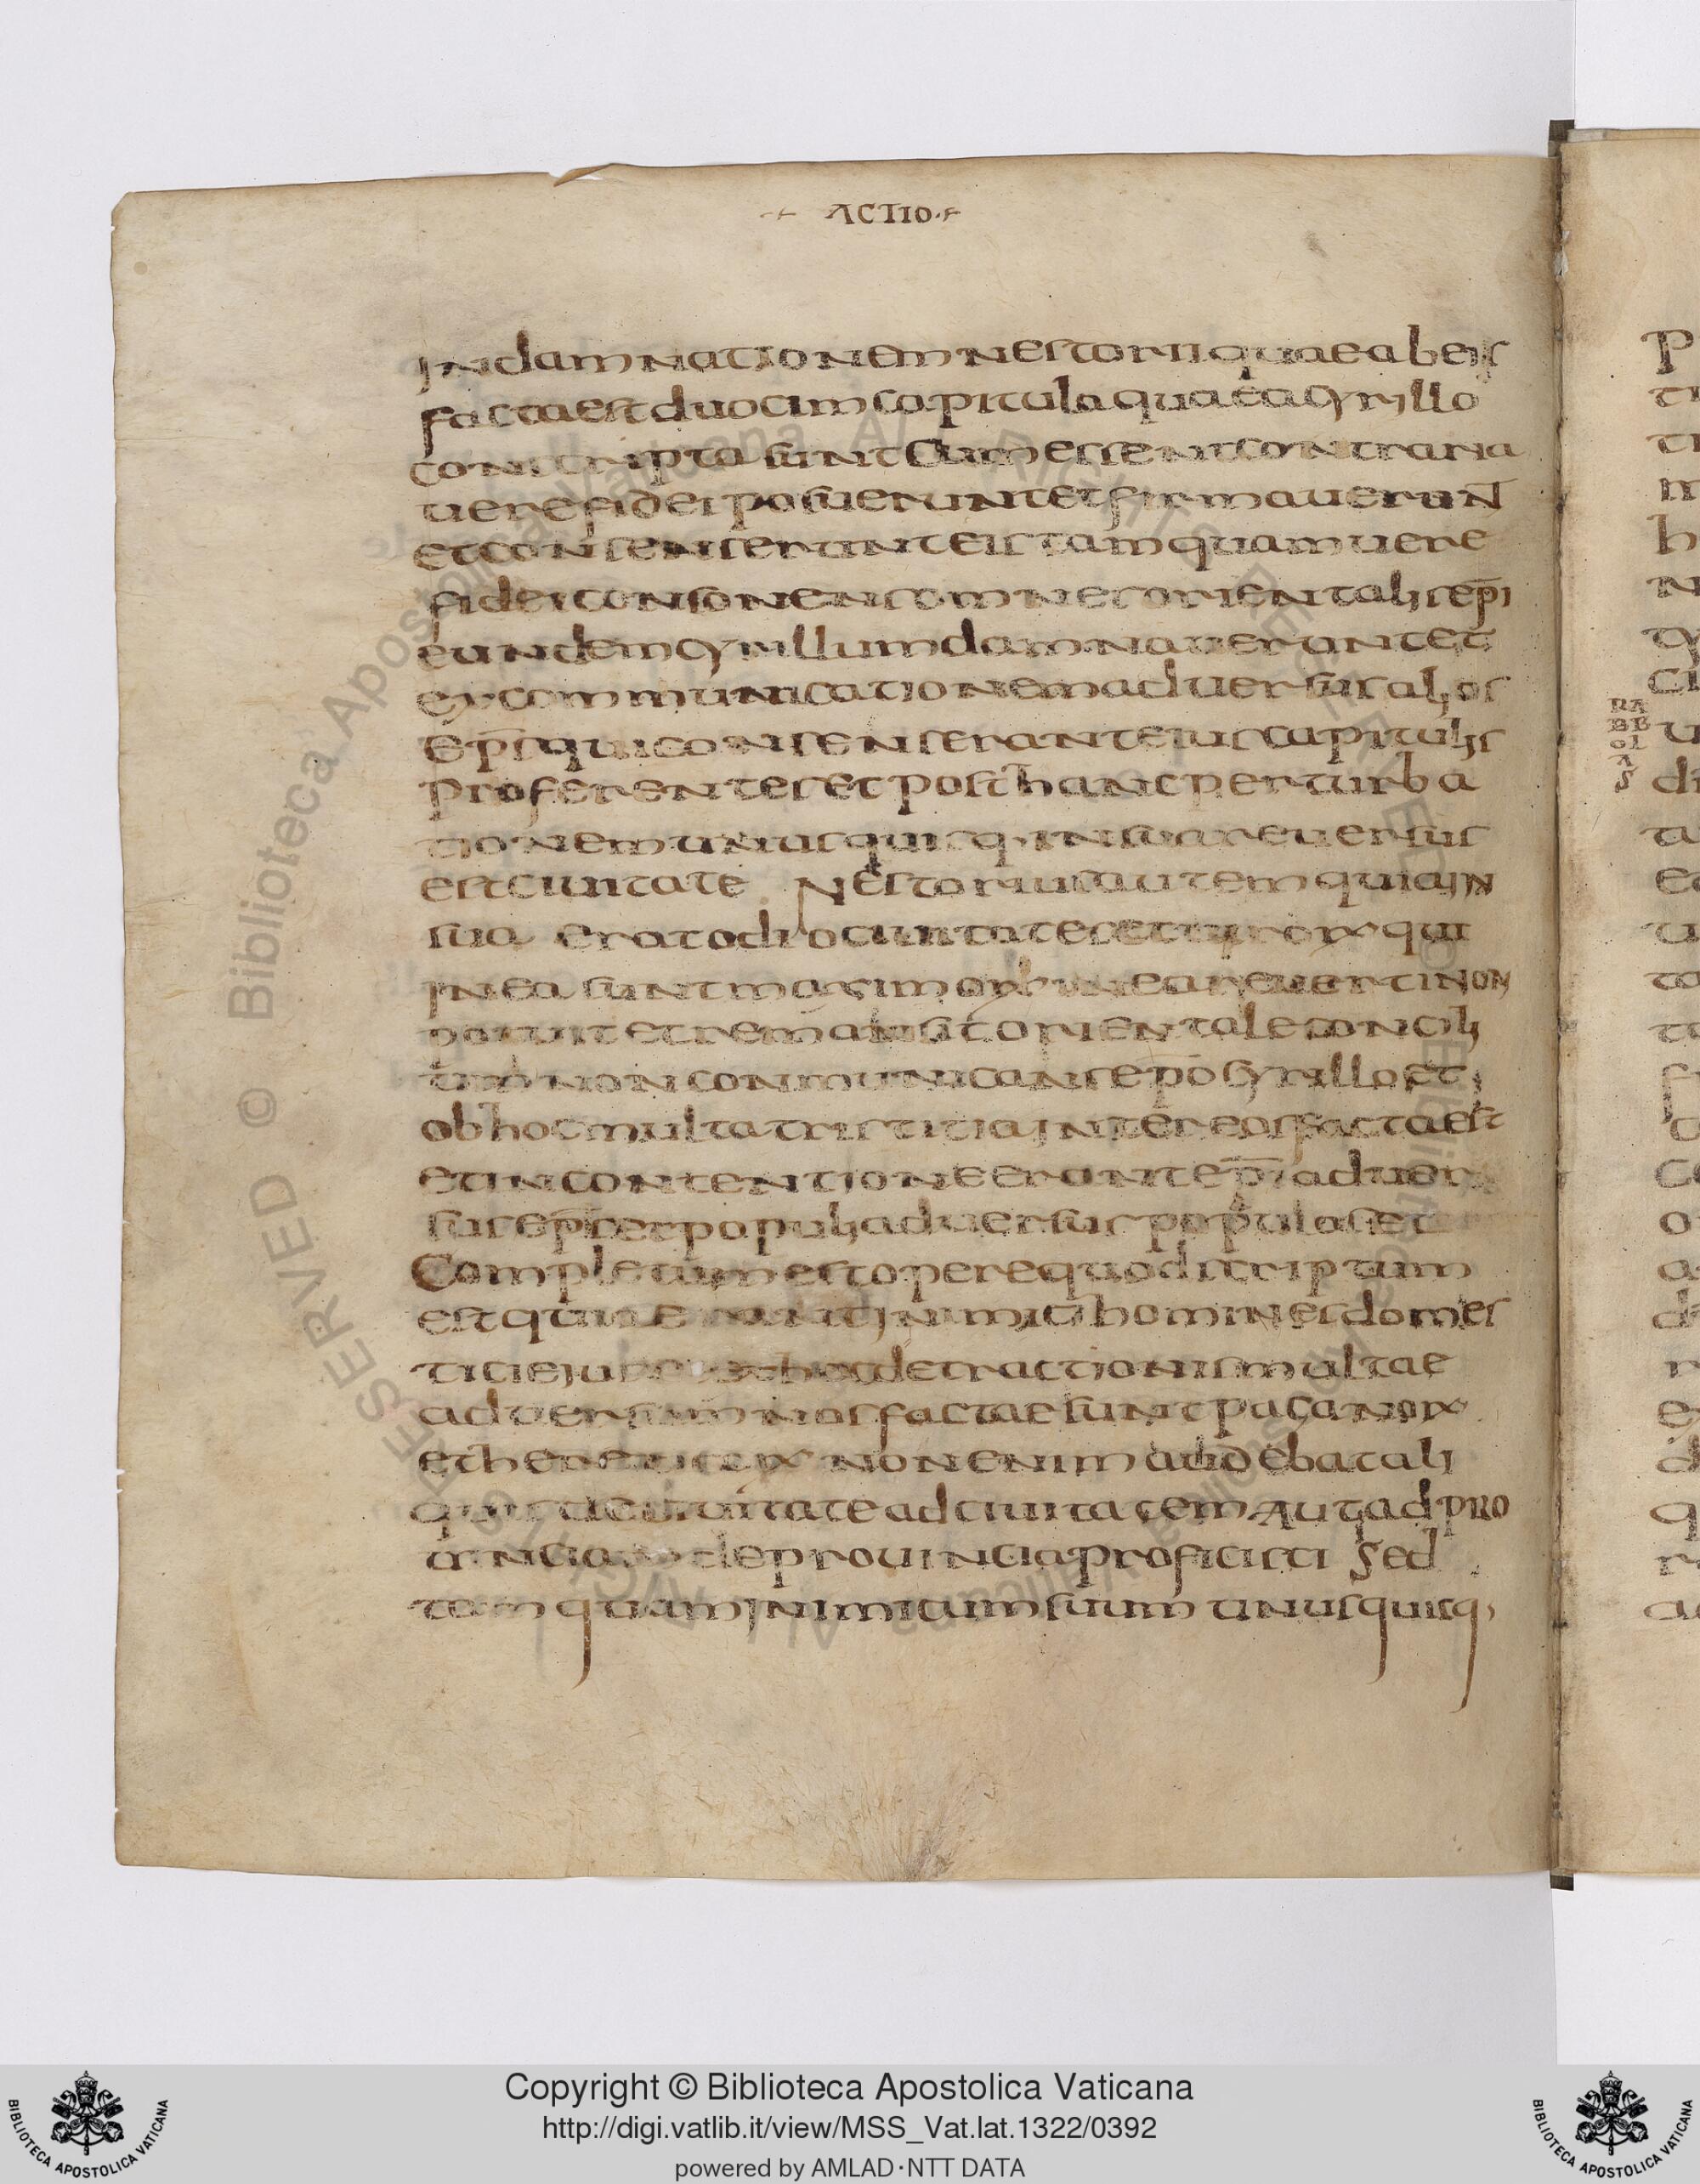 ACTIO
In damnationem nestorii quae ab eis
facta est duocim capitula quae a cyrillo
conscripta sunt Cum essent contraria
uere fidei posuerunt et firmauerun̅
et consenserunt eis tamquam uere
fidei consonens omnes orientalis ep̅i
eundem cyrillum damnauerunt et
excommunicationem aduersus alios
ep̅s qui consenserant eius capitulis
proferentes et post hanc perturba
tionem unusquisq· in sua reuersus
est ciuitate Nestorius autem quia in
sua erat odio ciuitates et qui
in ea sunt in ea reuerti non
potuit et remansit orientale concili
um non communicans ep̅o cyrillo et
ob hoc multa tristitia inter eos facta est
et in contentione erant ep̅i aduer
sus ep̅s et populi aduersus populos et
Completum est opere quod scriptum
est inimici hominis domes
tici eius hoc detractionis multae
aduersum nos factae sunt paganor
et non enim audebat ali
quis de ciuitate ad ciuitatem Aut ad pro
uincia de prouincia proficisci Sed
tamquam inimicum suum unusquisq,
RA
BB
OL
A
S
Copyright © Biblioteca Apostolica Vaticana
http://digi.vatlib.it/view/MSS_Vat.lat.1322/0392
powered by AMLAD·NTT DATA
BIBLIOTECA APOSTOLICA VATICANA
BIBLIOTECA APOSTOLICA VATICANA